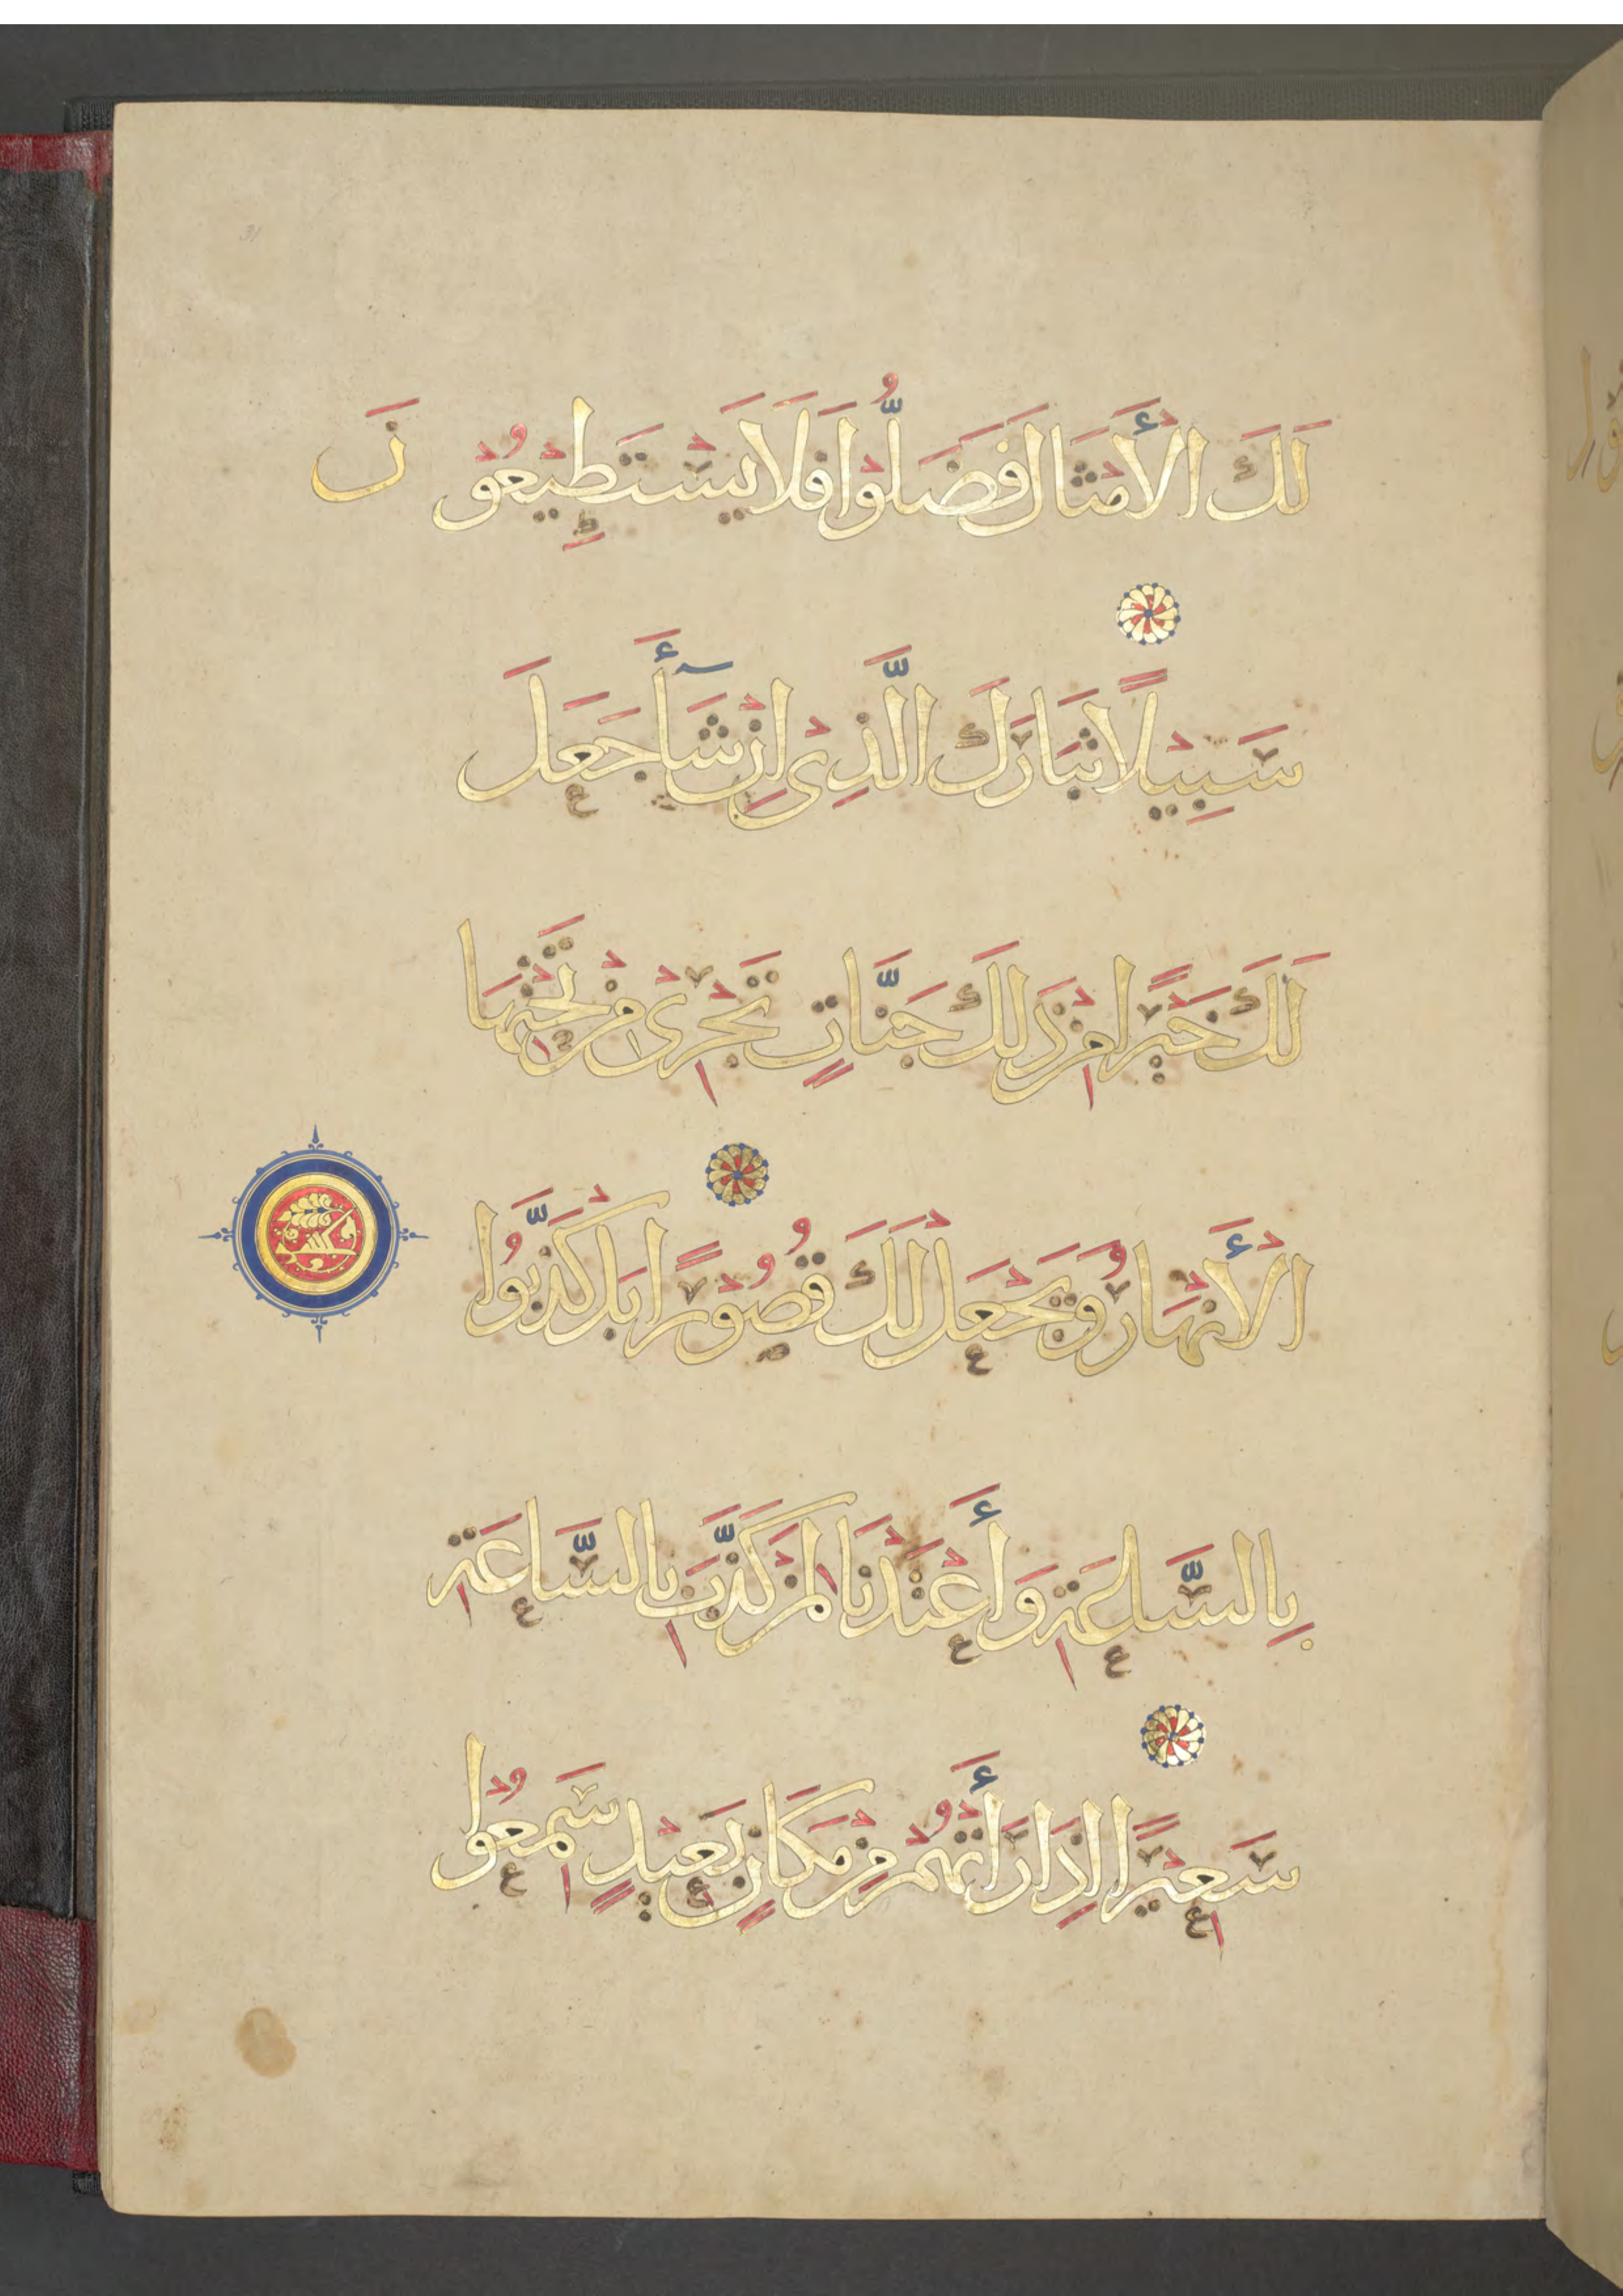 لَكَ الْأَمْثَالَ فَضَلُّوْا فَلَا يَسْتَطِيْعُوْنَ
سَبِيْلًا تَبَارَكَ الَّذِيْ اِنْ شَآأَ جَعَلَ
لَكَ خَيْرًا مِنْ ذَلِكَ جَنَّاتٍ تَجْرِيْ مِنْ تَحْتِهَا
الْأَنْهَارُ وَيَجْعَلْ لَكَ قُصُوْرًا بَلْ كَذَّبُوا
بِالسَّاعَةِ وَأَعْتَدْنَا لِمَنْ كَذَّبَ بِالسَّاعَةِ
سَعِيْرًا اِذَا رَأَتْهُمْ مِنْ مَكَانٍ بَعِيْدٍ سَمِعُوْا